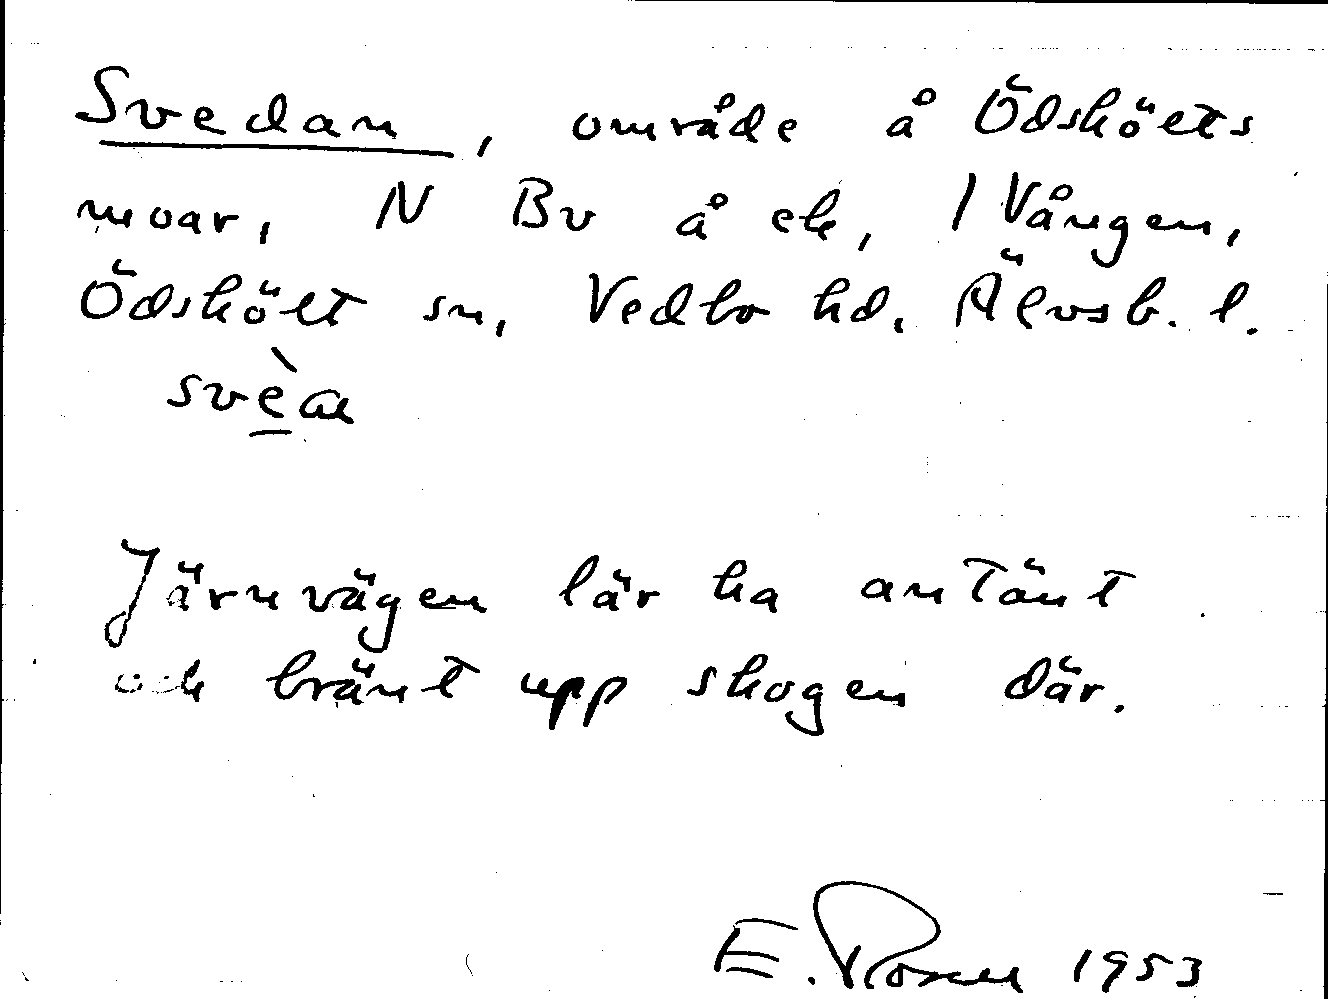 Svedan, område å Ödskölts
moar, N Bv å ek, 1 Vången,
Ödskölt sn, Vedbo hd. Älvsb. l.
svèa
Järnvägen lär ha antänt
och bränt upp skogen där.
E. Rosell 1953